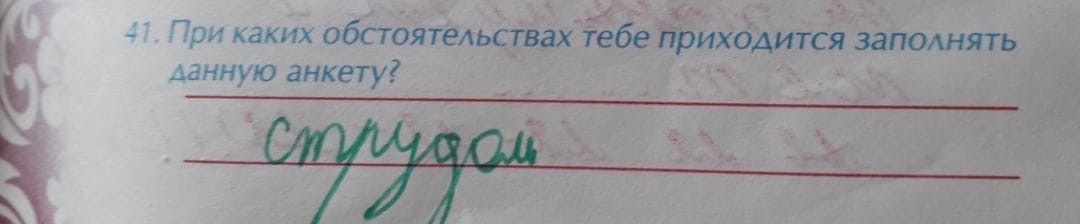 41. При каких обстоятельствах тебе приходится заполнять
данную анкету?
струдом